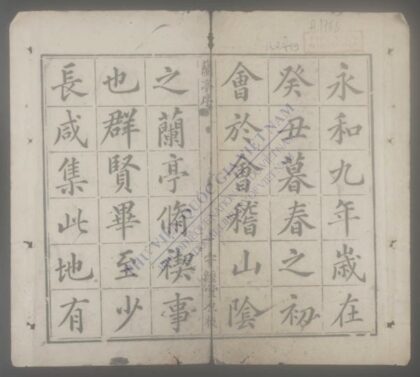 永和九年歲在
癸丑暮春之初
會於會稽山陰
之蘭亭脩禊事
也群賢畢至少
長咸集此地有
蘭亭序
THƯ VIỆN QUỐC GIA VIỆT NAM